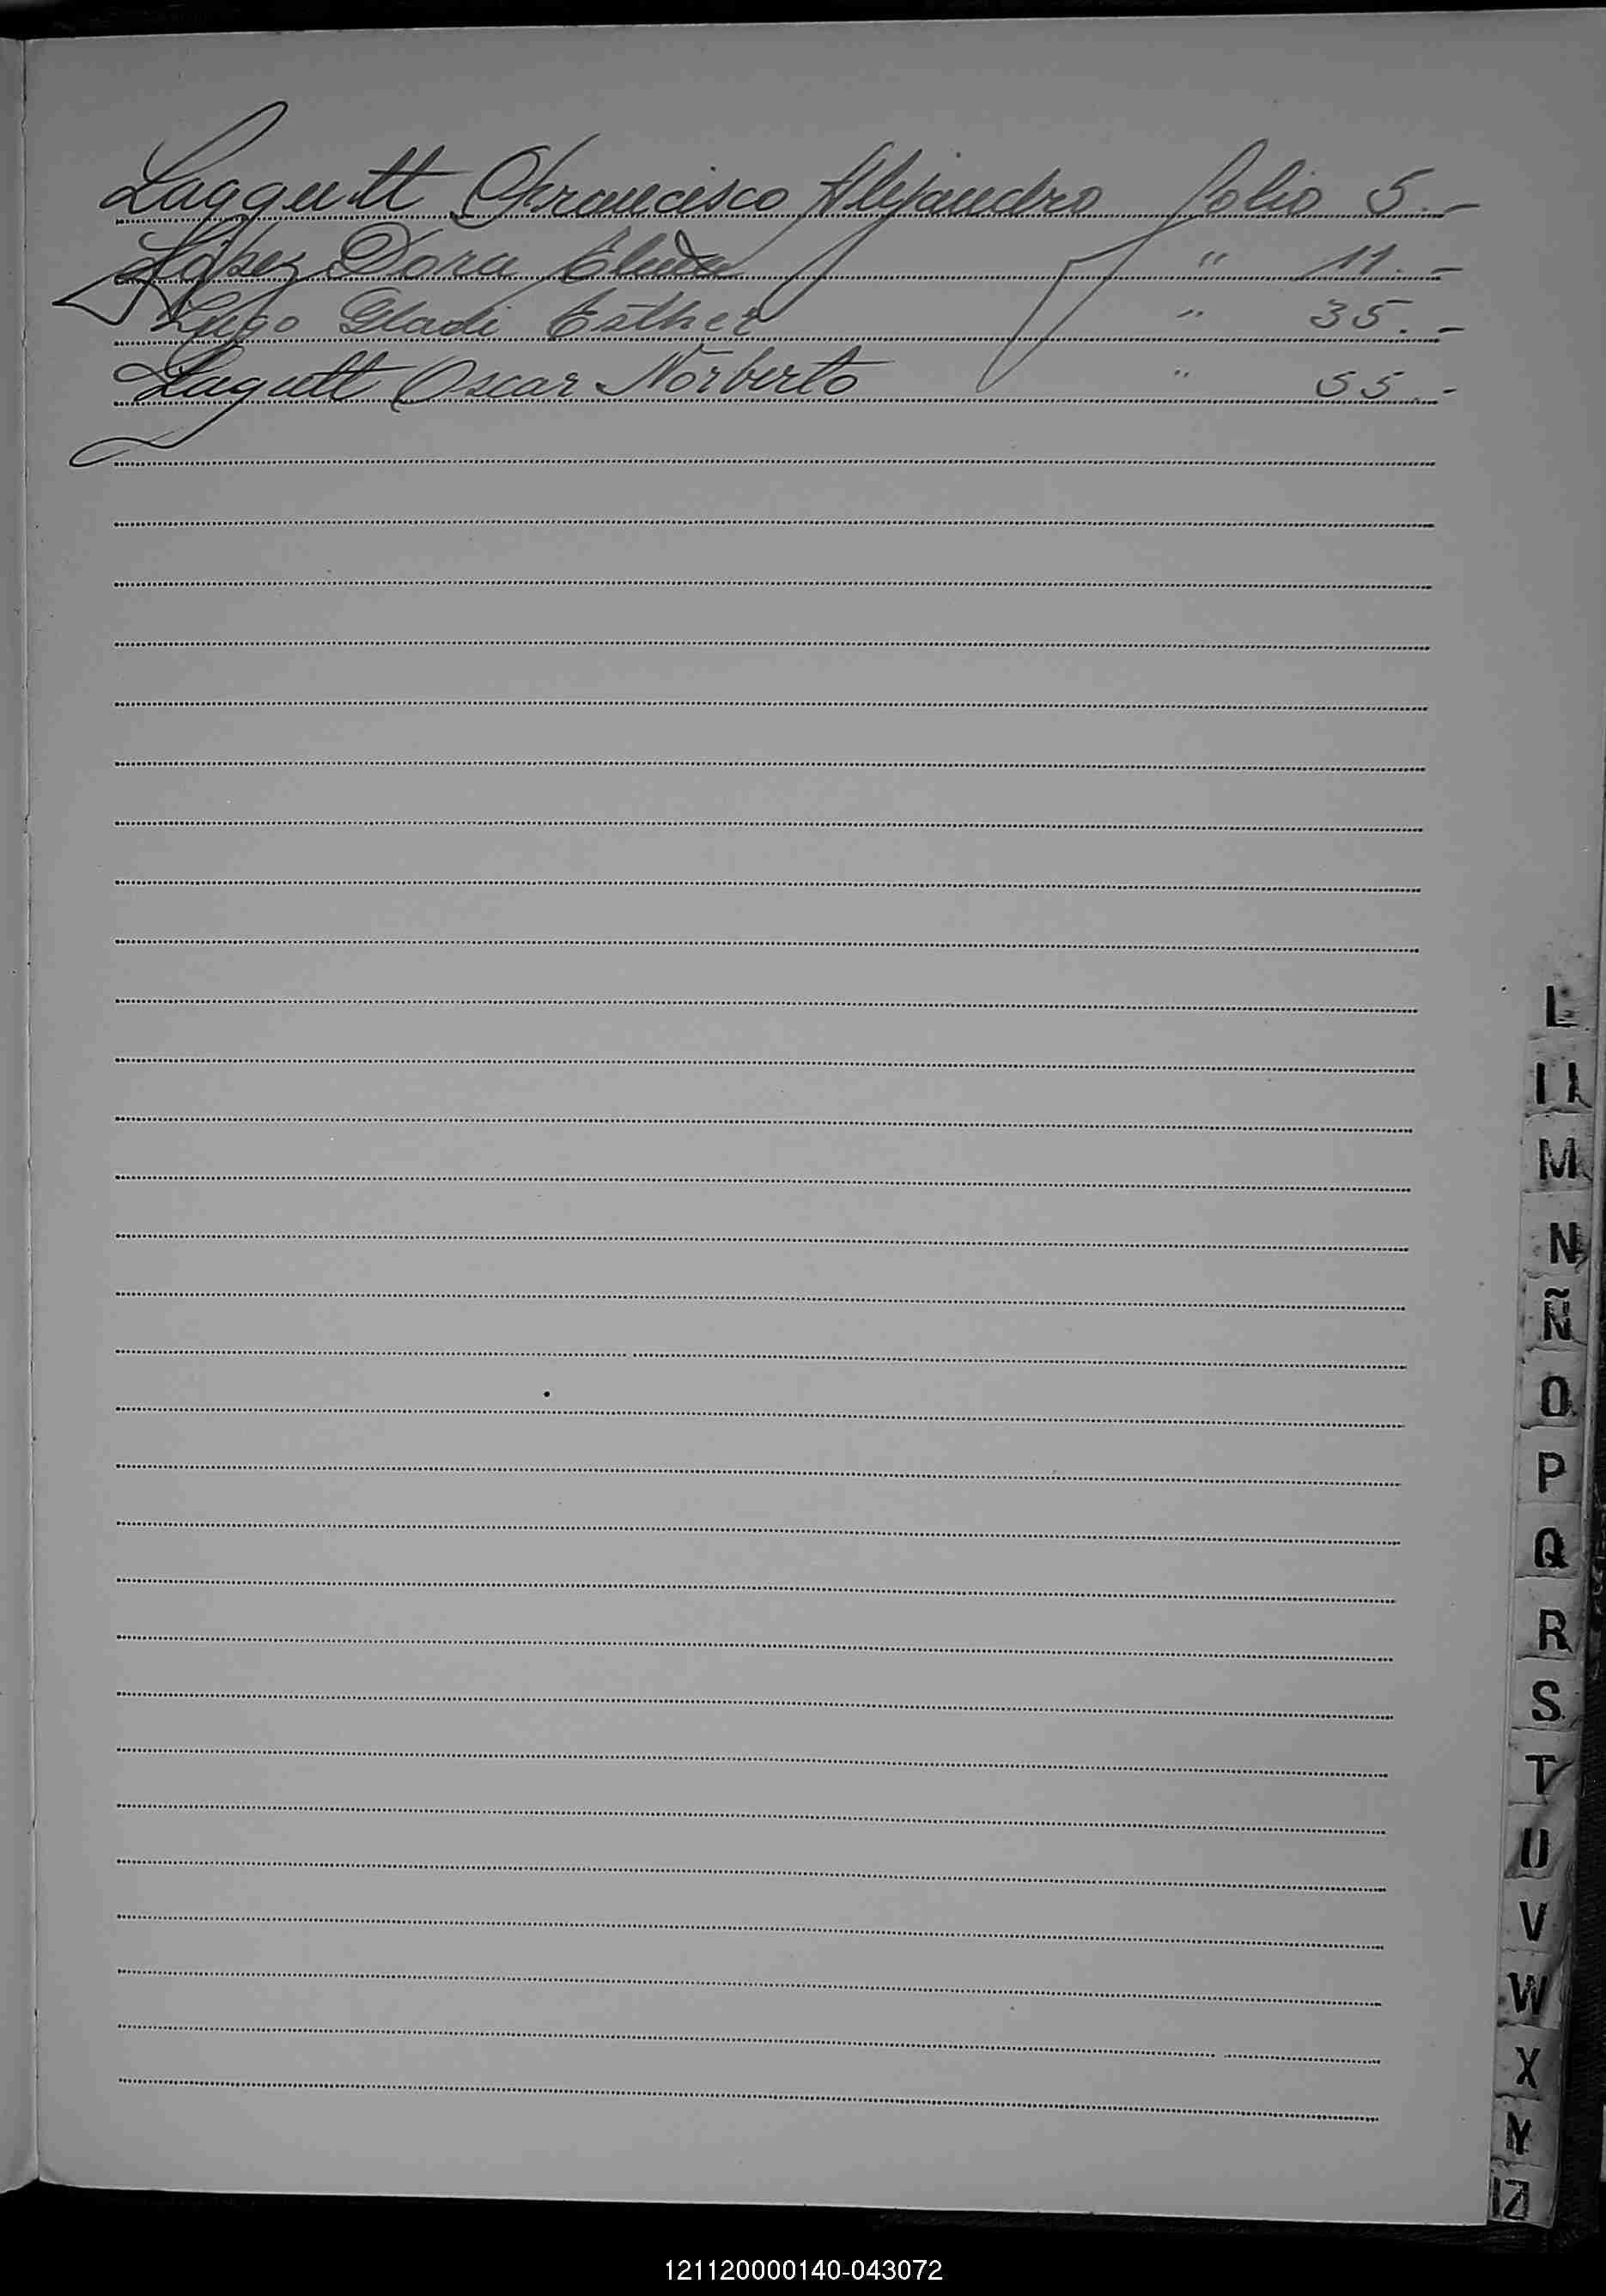 Laggutt Francisco Alejandro folio 5.-
López Dora Elida " 11.-
Lugo Gladi Esther " 35.-
Lagutt Oscar Norberto " 55.-
L
Ll
M
N
Ñ
O
P
Q
R
S
T
U
V
W
X
Y
Z
121120000140-043072